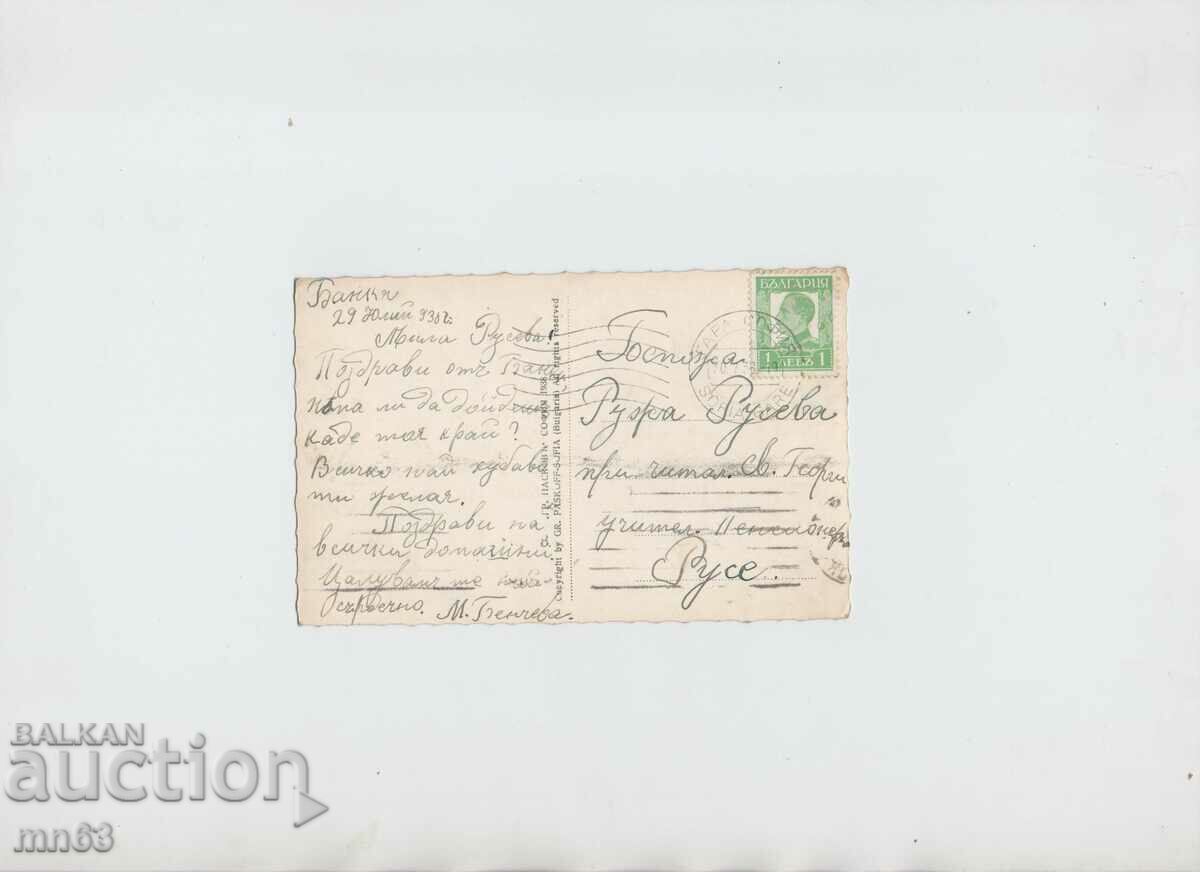 Банки
29 Юлий 938 г.
Мила Русева!
Поздрави отъ Банки
няма ли да дойдете
каде тоя край?
Всичко най хубаво
ти желая.
Поздрави на
всички домашни
Целувамъ те най-
сърдечно. М. Бенчева.
ГР. ПАСКОВЪ СОФИЯ 1938
Copyright by GR. PASKOFF-SOFIA (Bulgaria) All rights reserved
БЪЛГАРИЯ
1 ЛЕВЪ 1
ГАРА СОФИЯ
SOFIA GARE
Госпожа
Ружа Русева
при читал. Св. Георги
учител.
Русе.
BALKAN
auction
mn63